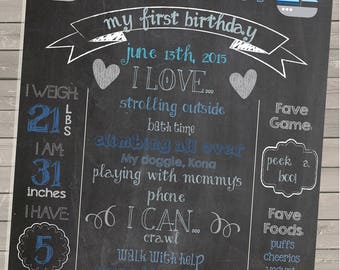 my first birthday
june 13th, 2015
I LOVE...
strolling outside
bath time
climbing all over
My doggie, Kona
playing with mommy's
phone
I CAN...
crawl
walk with help
I WEIGH:
21 LBS
I AM:
31
inches
I HAVE:
5
Fave
Game:
peek a
boo!
Fave
Foods:
puffs
cheerios